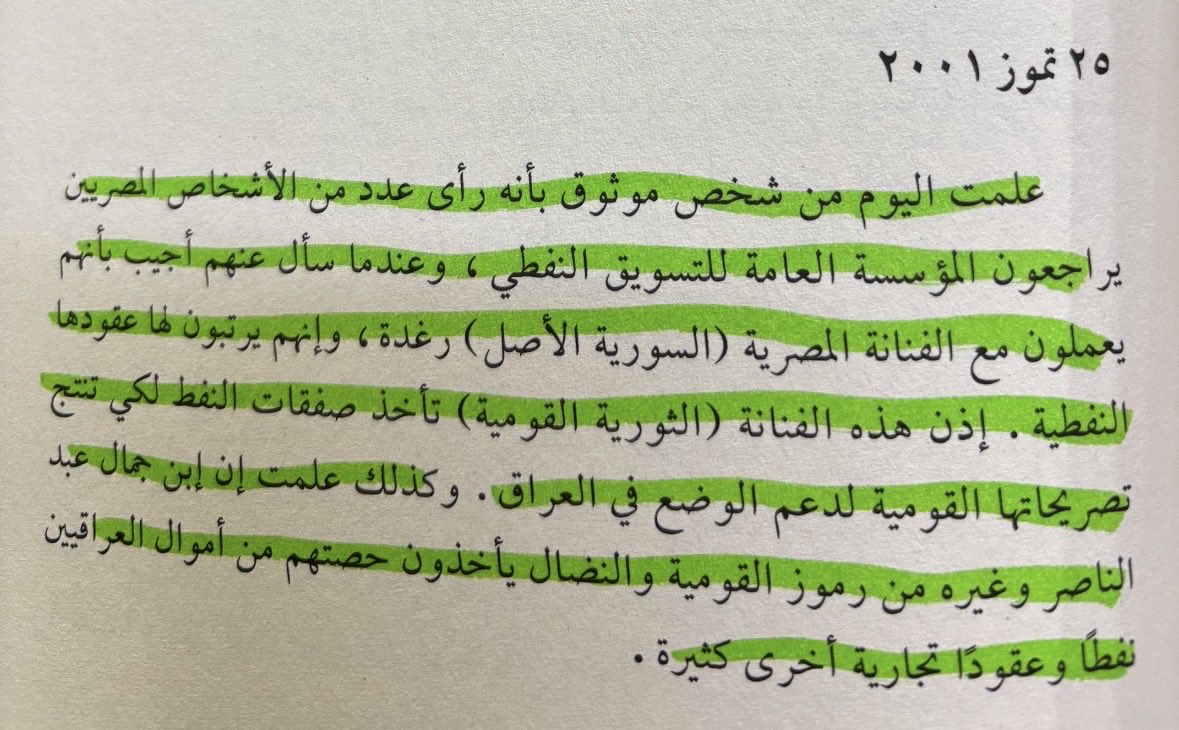 ٢٥ تموز ٢٠٠١
علمت اليوم من شخص موثوق بأنه رأى عدد من الأشخاص المصريين
يراجعون المؤسسة العامة للتسويق النفطي ، وعندما سأل عنهم أجيب بأنهم
يعملون مع الفنانة المصرية (السورية الأصل) رغدة ، وإنهم يرتبون لها عقودها
النفطية . إذن هذه الفنانة (الثورية القومية) تأخذ صفقات النفط لكي تنتج
تصريحاتها القومية لدعم الوضع في العراق . وكذلك علمت إن إبن جمال عبد
الناصر وغيره من رموز القومية والنضال يأخذون حصتهم من أموال العراقيين
نفطًا وعقودًا تجارية أخرى كثيرة .